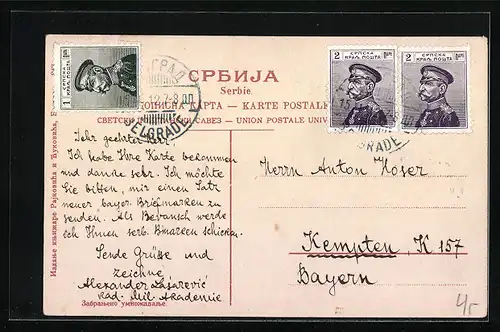 СРБИЈА
Serbie
ДОПИСНА КАРТА – CARTE POSTALE
СВЕТСКИ САВЕЗ – UNION POSTALE UNIV
1
СРПСКА
КРАЉ. ПОШТА
2
СРПСКА
КРАЉ. ПОШТА
2
СРПСКА
КРАЉ. ПОШТА
BELGRADE
Sehr geehrter Herr
Ich habe Ihre Karte bekommen
und danke sehr. Ich möchte
Sie bitten, mir einen Satz
neuer bayer. Briefmarken zu
senden. Als werde
ich Ihnen serb. Marken schicken.
Sende Grüsse und
zeichne
Alexander Lazarević
Kad. Mil. Akademie
Herrn Anton Koser
Kempten, K 157
Bayern
Забрањено умножавање
Издање књижаре Рајковића и Ћуковића,
4r